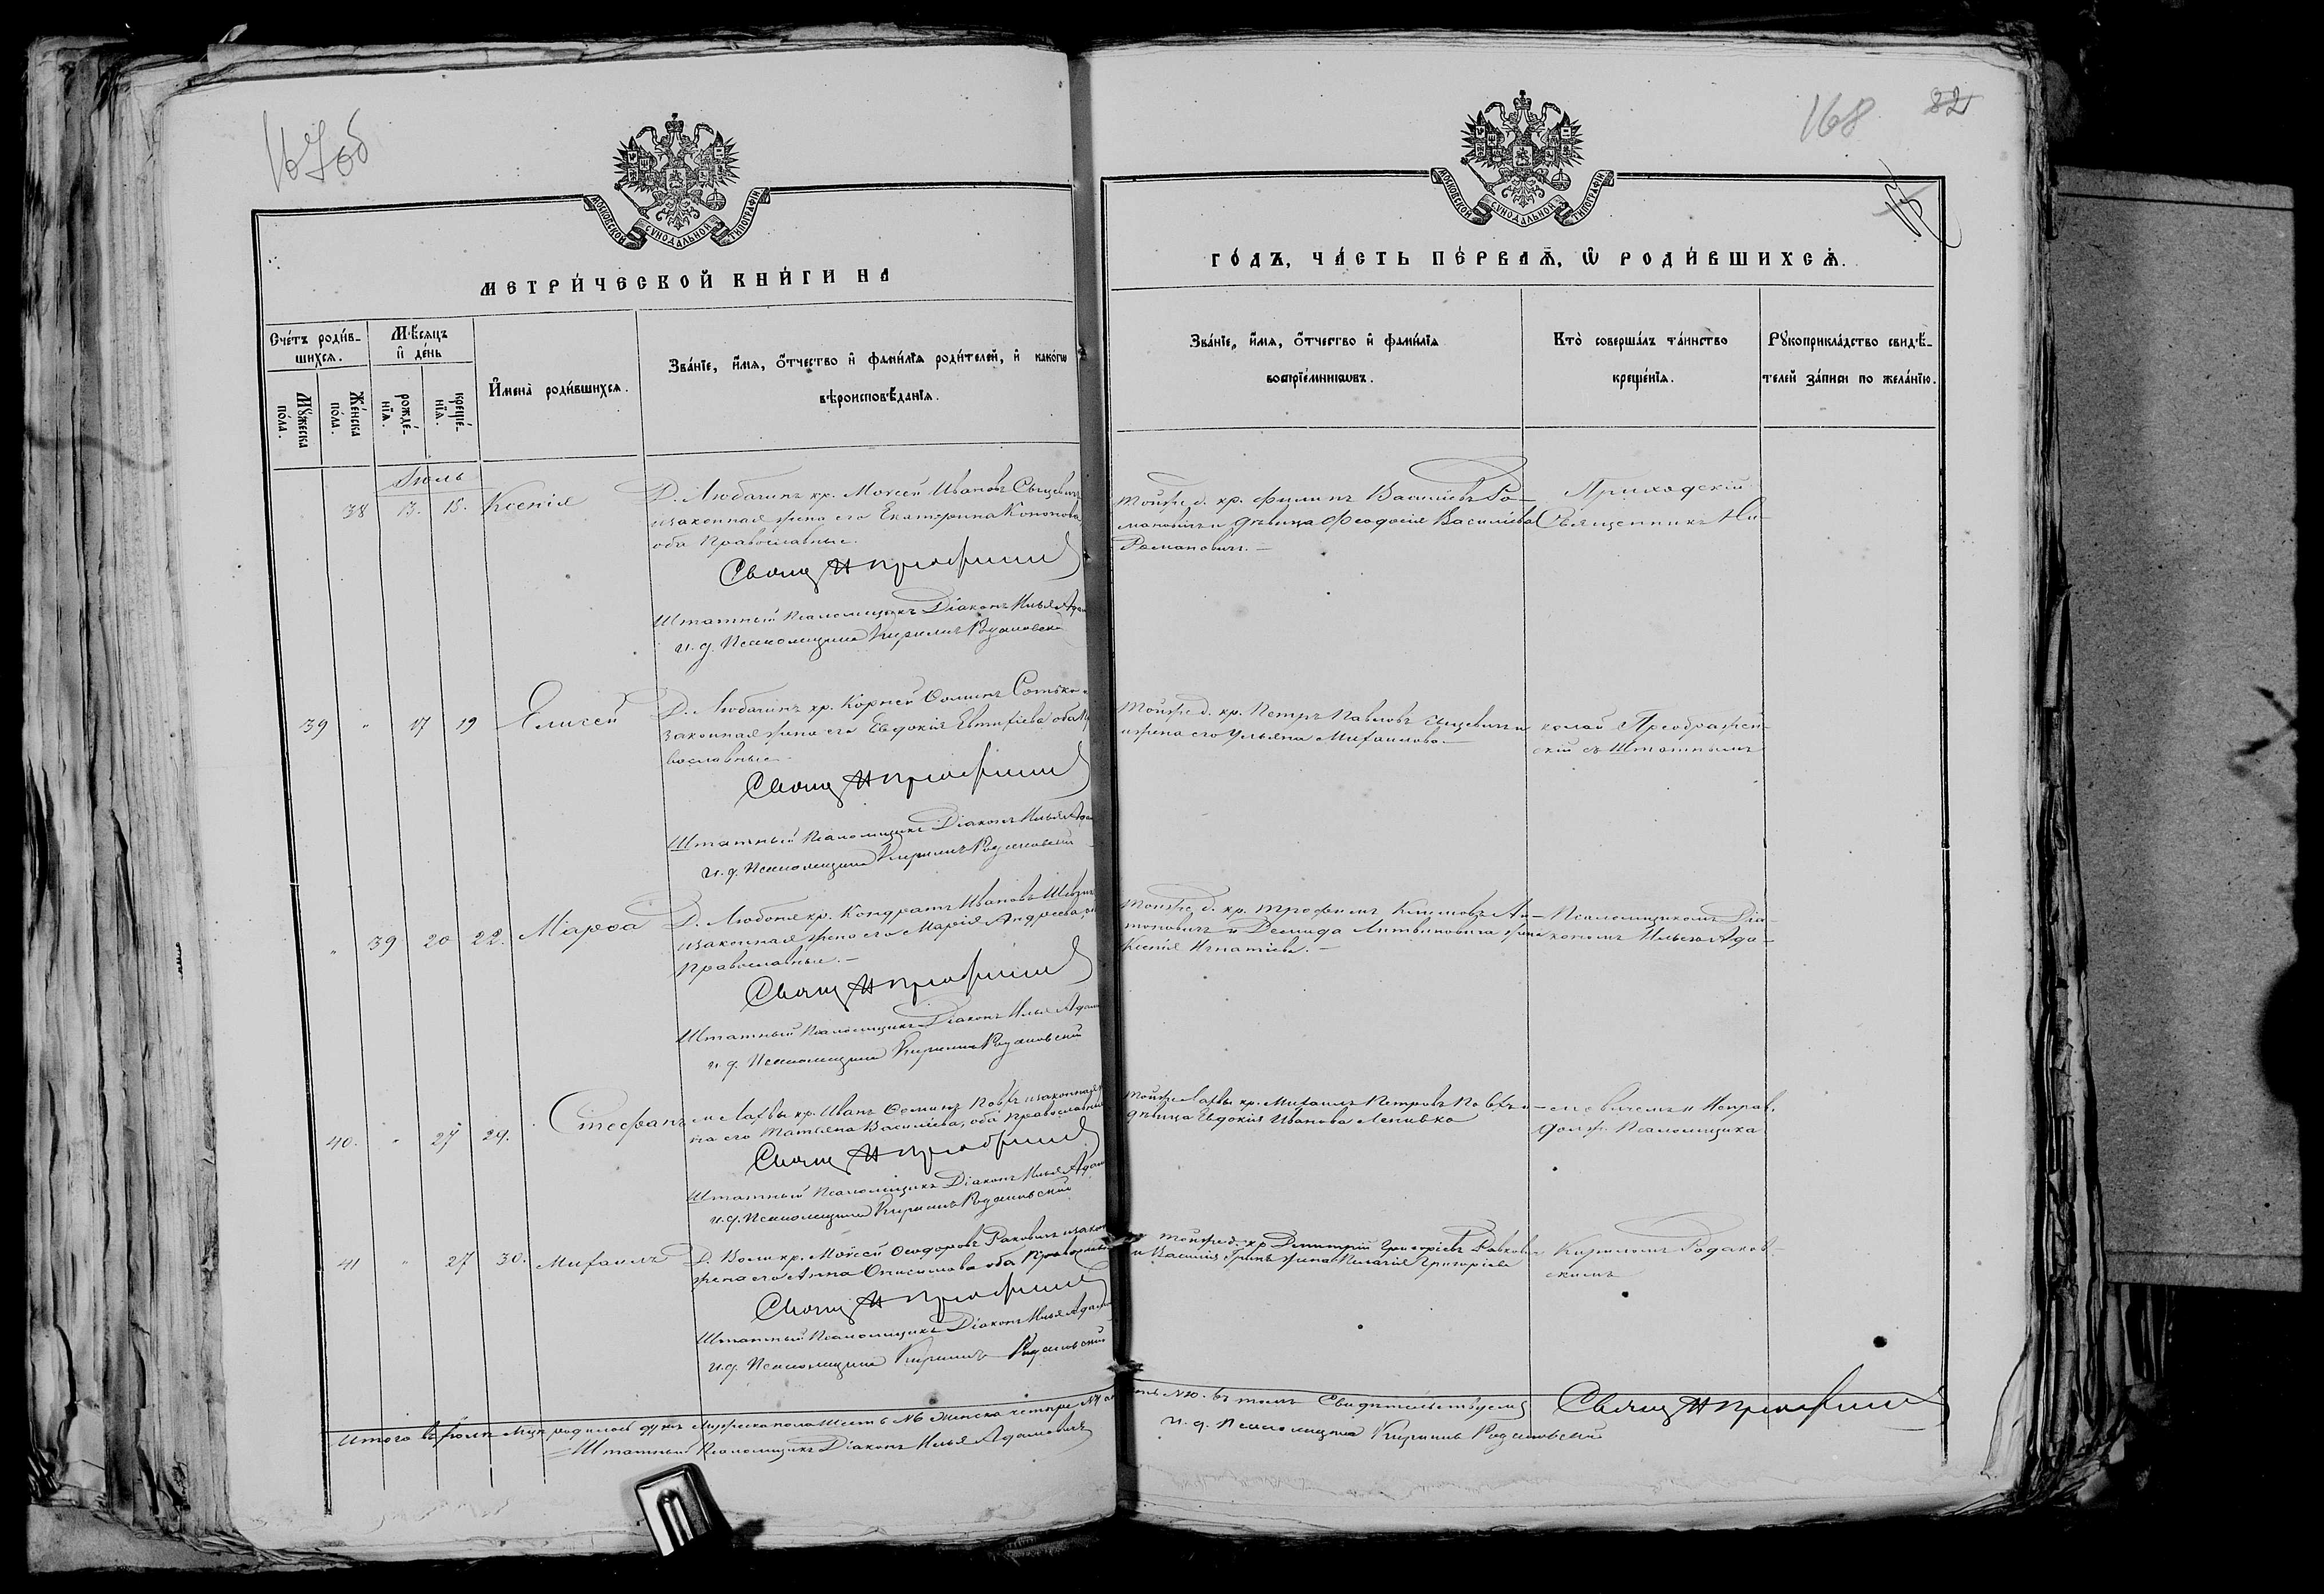 167об
168
82
МОСКОВСКОЙ СУНОДАЛЬНОЙ ТИПОГРАФІИ
МОСКОВСКОЙ СУНОДАЛЬНОЙ ТИПОГРАФІИ
МЕТРИ́ЧЕСКОЙ КНИ́ГИ НА
ГО́ДЪ, ЧА́СТЬ ПЕ́РВАЯ, Ѡ РОДИ́ВШИХСЯ.
Сче́тъ роди́в-
шихся.
Мѣ́сяцъ
и де́нь
Му́жеска по́ла.
Же́нска по́ла.
рожде́-
нїя.
креще́-
нїя.
И҆мена̀ роди́вшихся.
Зва́нїе, и҆́мя, о҆́тчество и҆ фами́лїя роди́телей, и҆ како́гѡ
вѣроисповѣ́данїя.
Зва́нїе, и҆́мя, о҆́тчество и҆ фами́лїя
воспрїе́мникѡвъ.
Кто̀ соверша́лъ та́инство
креще́нїя.
Рꙋкоприкла́дство свидѣ́-
телей за́писи по жела́нїю.
Іюль
38 13. 15. Ксенія
Д. Любачинъ кр. Моисей Ивановъ
и законная жена его Екатерина Кононова
оба православные.
Свящ Н Преображен
Штатный Псаломщикъ Діаконъ Илья Адам
и. д. Псаломщика Кириллъ Родаковскій
Тойже д. кр. Филипъ Василіевъ Ро-
мановичъ и дѣвица Феодосія Василіева
Романовичъ. —
Приходскій
Священникъ Ни-
39 " 17 19 Елисей
Д. Любачинъ кр. Корней Ѳоминъ
законная жена его Евдокія Евтифіева оба Пра
вославные.
Свящ Н Преображен
Штатный Псаломщикъ Діаконъ Илья Адам
и. д. Псаломщика Кириллъ Родаковскій
Тойже д. кр. Петръ Павловъ
и жена его Ульяна Михаилова. —
колай Преображен-
скій съ Штатнымъ
" 39 20 22. Марѳа
Д. Любоня кр. Кондратъ Ивановъ
и законная жена его Марія Андреева
Православные. —
Свящ Н Преображен
Штатный Псаломщикъ Діаконъ Илья Адам
и. д. Псаломщика Кириллъ Родаковскій
Тойже д. кр. Трофимъ Климовъ Ан-
тоновичъ и Демида Литвиновича жена
Ксенія Игнатіева. —
Псаломщикомъ Діа-
кономъ Ильею Ада-
40. " 27 29. Стефанъ
м Лахвы кр. Иванъ Ѳоминъ и законная
на его Татьяна Василіева, оба православные
Свящ Н Преображен
Штатный Псаломщикъ Діаконъ Илья Адам
и. д. Псаломщика Кириллъ Родаковскій
Тойже Лахвы кр. Михаилъ Петровъ
дѣвица Евдокія Иванова Ленивко
мовичемъ и Исправ.
долж. Псаломщика
41 " 27 30. Михаилъ
Д. Воли кр. Моисей Ѳеодоровъ и закон
жена его Анна Онисимова оба Православ
Свящ Н Преображен
Штатный Псаломщикъ Діаконъ Илья Адам
и. д. Псаломщика Кириллъ Родаковскій
Тойже д. кр. Димитрій Григоріевъ
и Василія Гринъ жена Пелагія Григоріева
Кириломъ Родаков-
скимъ
Итого въ Іюлѣ Мцѣ родилось душъ Мужеска пола Шесть №6 Женска четыре №4
№10. въ томъ Свидѣтельствуемъ
Свящ Н Преображен
Штатный Псаломщикъ Діаконъ Илья Адамовичъ
и. д. Псаломщика Кириллъ Родаковскій